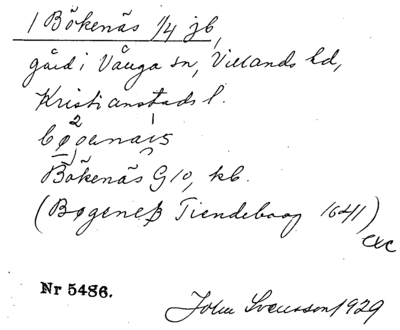 1 Bökenäs 1/4 jb,
gård i Vånga sn, Villands hd,
Kristianstads l.
Bökenäs G10, kb.
(Bøgeneß Tiendebog 1641)
exc
Nr 5486.
John Svensson 1929